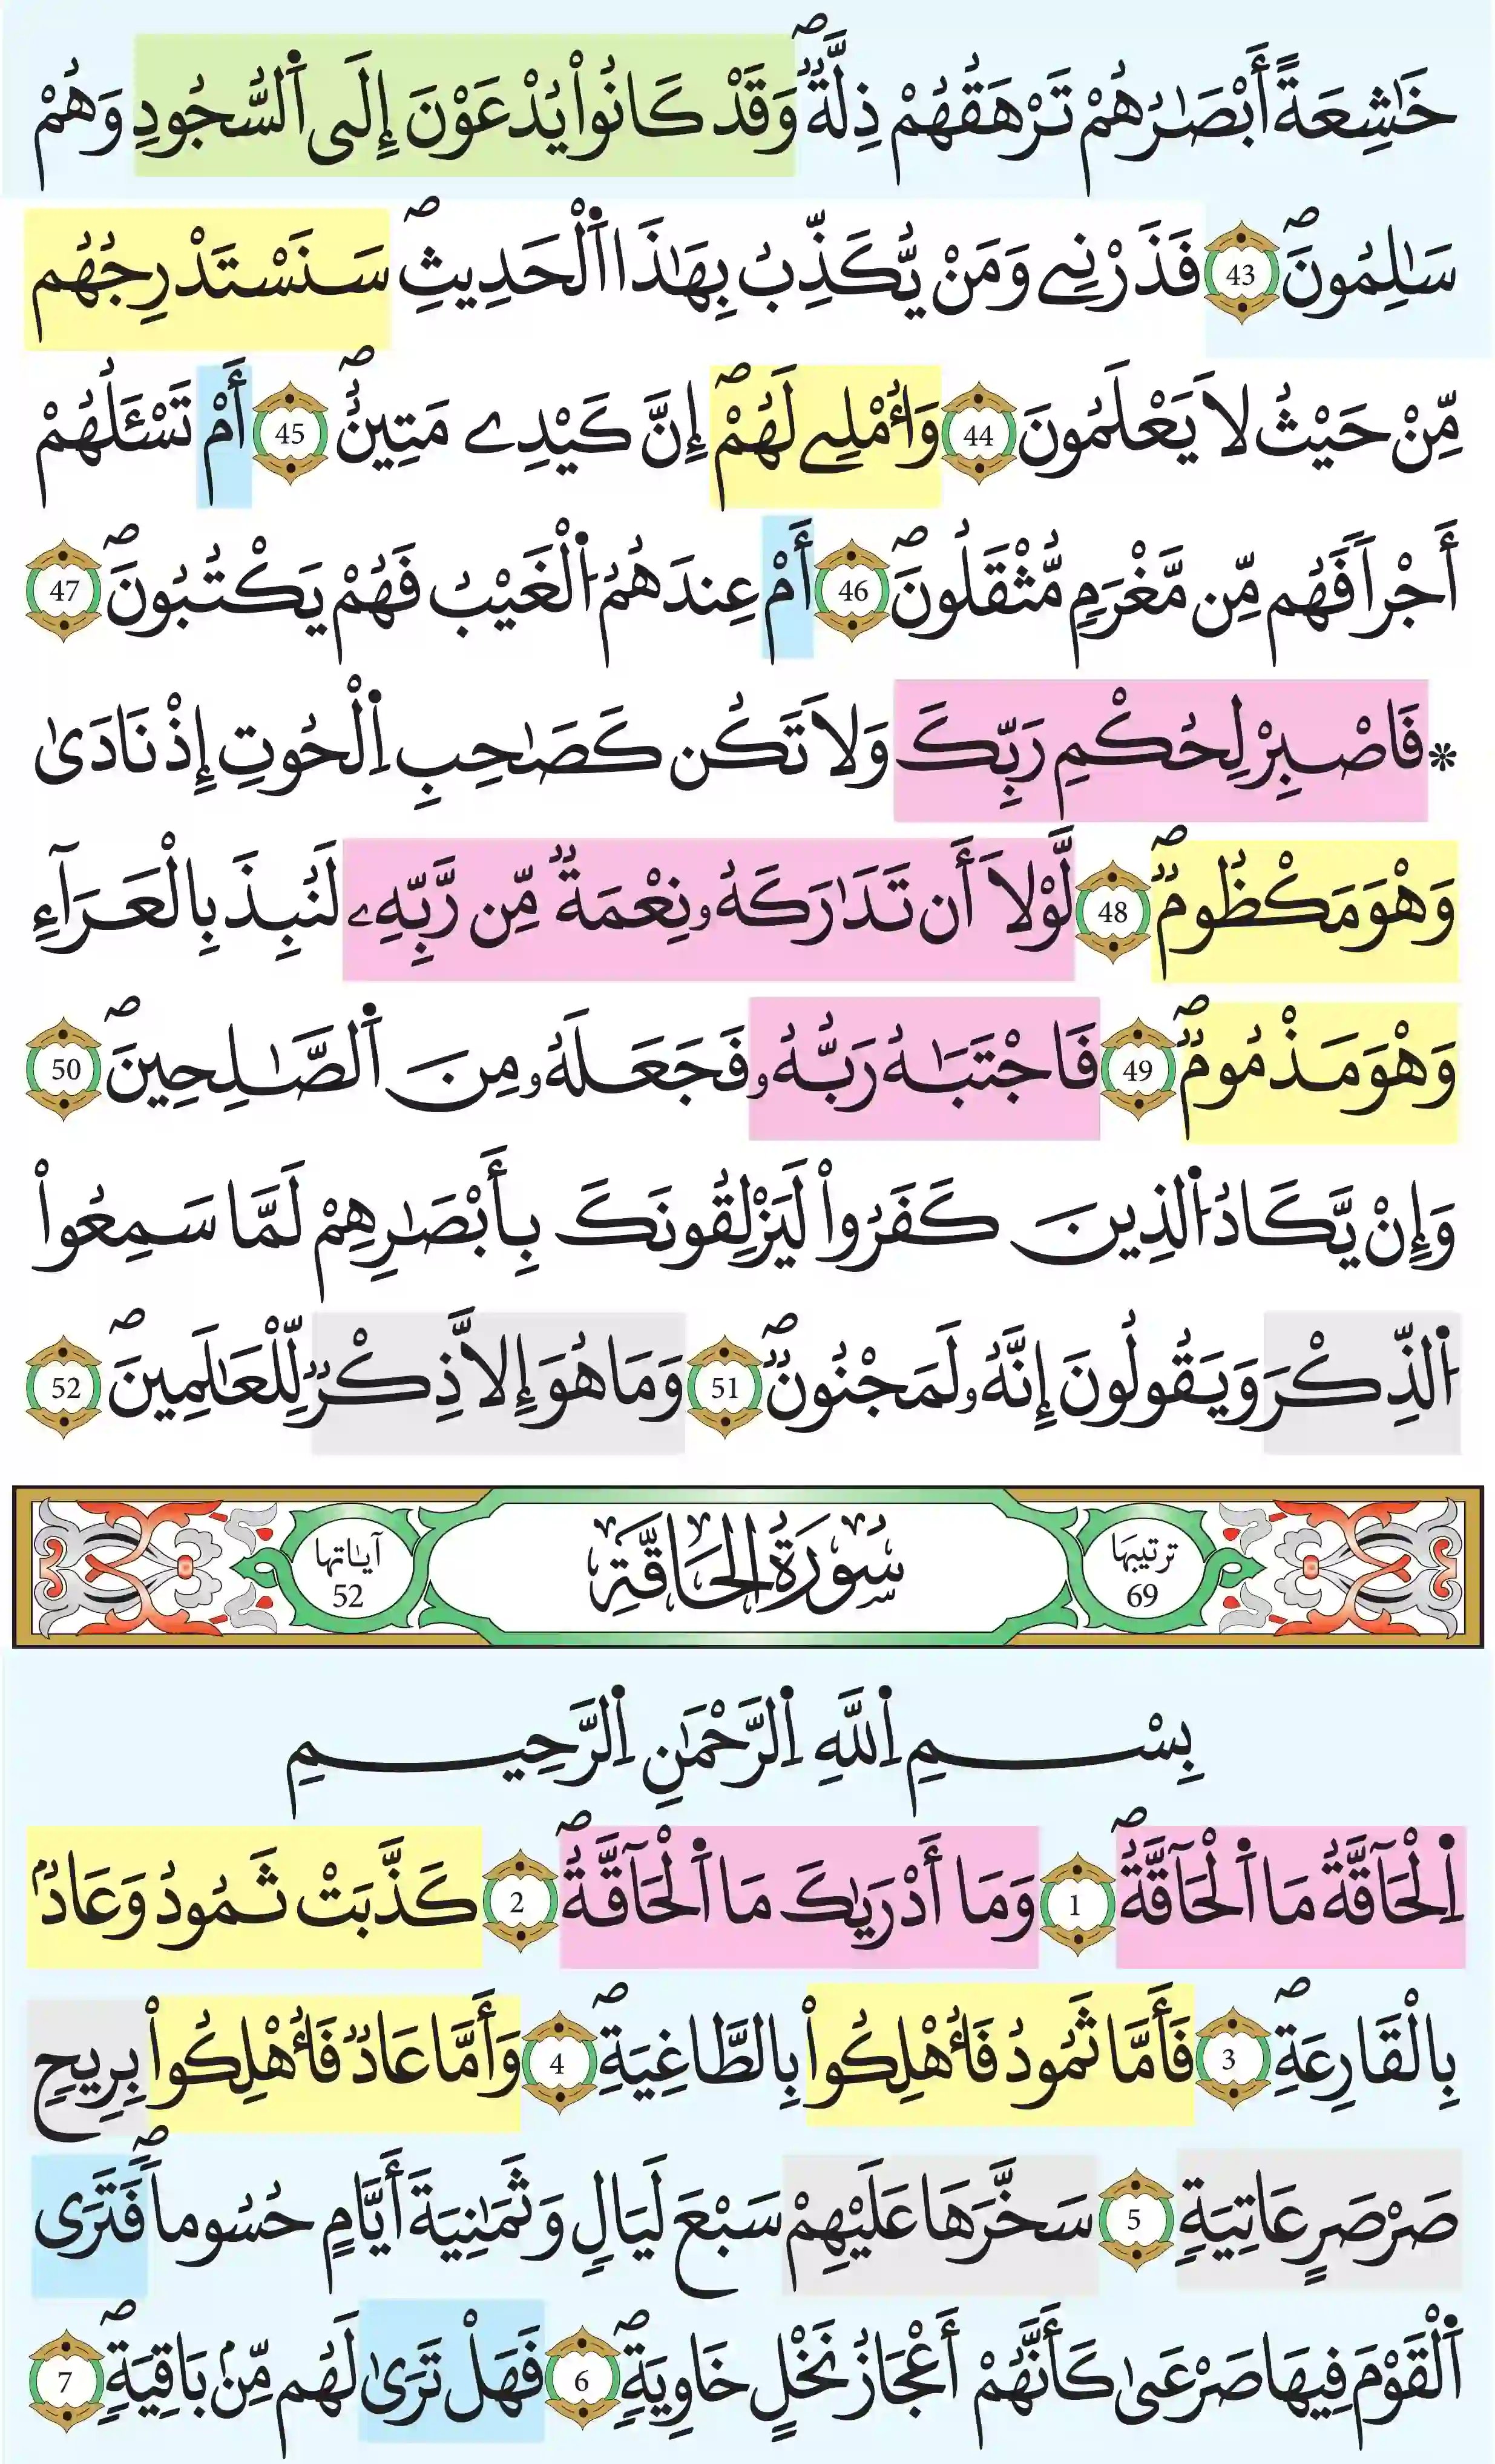 خَٰشِعَةً أَبْصَٰرُهُمْ تَرْهَقُهُمْ ذِلَّةٞۖ وَقَدْ كَانُواْ يُدْعَوْنَ إِلَى اَ۬لسُّجُودِ وَهُمْ
سَٰلِمُونَۖ 43 فَذَرْنِے وَمَنْ يُّكَذِّبُ بِهَٰذَا اَ۬لْحَدِيثِۖ سَنَسْتَدْرِجُهُم
مِّنْ حَيْثُ لَا يَعْلَمُونَ 44 وَأُمْلِے لَهُمْۖ إِنَّ كَيْدِے مَتِينٌۖ 45 أَمْ تَسْـَٔلُهُمْ
أَجْراٗ فَهُم مِّن مَّغْرَمٖ مُّثْقَلُونَۖ 46 أَمْ عِندَهُمُ اُ۬لْغَيْبُ فَهُمْ يَكْتُبُونَۖ 47
* فَاصْبِرْ لِحُكْمِ رَبِّكَ وَلَا تَكُن كَصَٰحِبِ اِ۬لْحُوتِ إِذْ نَادَىٰ
وَهْوَ مَكْظُومٞۖ 48 لَّوْلَا أَن تَدَٰرَكَهُۥ نِعْمَةٞ مِّن رَّبِّهِۦ لَنُبِذَ بِالْعَرَآءِ
وَهْوَ مَذْمُومٞۖ 49 فَاجْتَبَٰهُ رَبُّهُۥ فَجَعَلَهُۥ مِنَ اَ۬لصَّٰلِحِينَۖ 50
وَإِنْ يَّكَادُ اُ۬لذِينَ كَفَرُواْ لَيَزْلِقُونَكَ بِأَبْصَٰرِهِمْ لَمَّا سَمِعُواْ
اُ۬لذِّكْرَ وَيَقُولُونَ إِنَّهُۥ لَمَجْنُونٞۖ 51 وَمَا هُوَ إِلَّا ذِكْرٞ لِّلْعَٰلَمِينَۖ 52
ترتيبها 69 سُورَةُ الحَاقَّةِ آياتها 52
بِسْمِ اِ۬للَّهِ اِ۬لرَّحْمَٰنِ اِ۬لرَّحِيمِ
اِ۬لْحَآقَّةُ مَا اَ۬لْحَآقَّةُۖ 1 وَمَا أَدْرَىٰكَ مَا اَ۬لْحَآقَّةُۖ 2 كَذَّبَتْ ثَمُودُ وَعَادُۢ
بِالْقَارِعَةِۖ 3 فَأَمَّا ثَمُودُ فَأُهْلِكُواْ بِالطَّاغِيَةِۖ 4 وَأَمَّا عَادٞ فَأُهْلِكُواْ بِرِيحٖ
صَرْصَرٍ عَاتِيَةٖ 5 سَخَّرَهَا عَلَيْهِمْ سَبْعَ لَيَالٖ وَثَمَٰنِيَةَ أَيَّامٍ حُسُوماٗۖ فَتَرَى
اَ۬لْقَوْمَ فِيهَا صَرْعَىٰ كَأَنَّهُمْ أَعْجَازُ نَخْلٍ خَاوِيَةٖۖ 6 فَهَلْ تَرَىٰ لَهُم مِّنۢ بَاقِيَةٖۖ 7